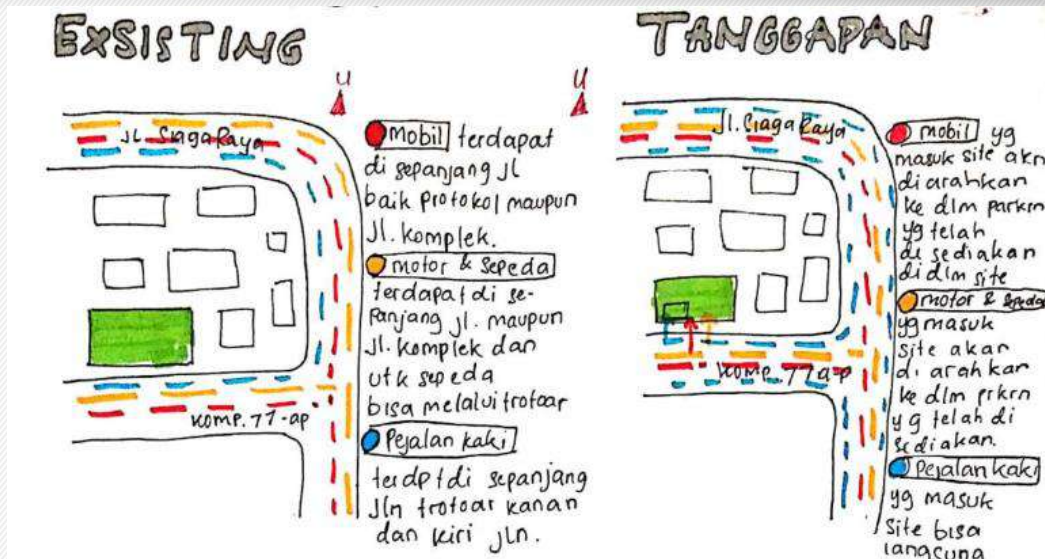 EXSISTING
U
Jl. SiagaRaya
mobil terdapat
di sepanjang jl
baik protokol maupun
Jl. komplek.
motor & sepeda
terdapat di se-
panjang jl. maupun
Jl. komplek dan
utk sepeda
bisa melalui trotoar
Pejalan kaki
terdpt di sepanjang
Jln trotoar kanan
dan kiri jln.
KOMP. 77-ap
TANGGAPAN
U
Jl. SiagaRaya
mobil yg
masuk site akn
di arahkan
ke dlm parkrn
yg telah
di sediakan
di dlm site
motor & sepeda
yg masuk
site akan
di arahkan
ke dlm prkrn
yg telah di
sediakan.
Pejalan kaki
yg masuk
site bisa
langsung
KOMP. 77 a-p